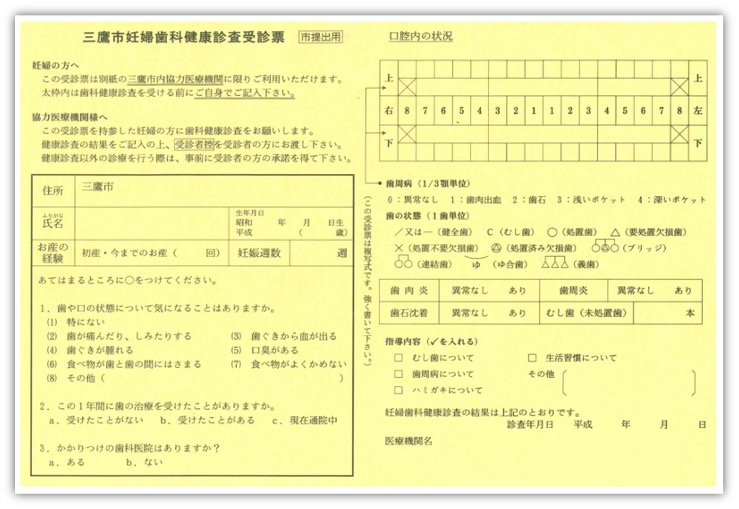 三鷹市妊婦歯科健康診査受診票 市提出用
妊婦の方へ
この受診票は別紙の三鷹市内協力医療機関に限りご利用いただけます。
太枠内は歯科健康診査を受ける前にご自身でご記入下さい。
協力医療機関様へ
この受診票を持参した妊婦の方に歯科健康診査をお願いします。
健康診査の結果をご記入の上、受診者控を受診者の方にお渡し下さい。
健康診査以外の診療を行う際は、事前に受診者の方の承諾を得て下さい。
住所 三鷹市
ふりがな
氏名
生年月日
昭和 年 月 日生
平成 ( 歳)
お産の経験 初産・今までのお産 ( 回) 妊娠週数 週
あてはまるところに○をつけてください。
1．歯や口の状態について気になることはありますか。
(1) 特にない
(2) 歯が痛んだり、しみたりする (3) 歯ぐきから血が出る
(4) 歯ぐきが腫れる (5) 口臭がある
(6) 食べ物が歯と歯の間にはさまる (7) 食べ物がよくかめない
(8) その他 ( )
2．この1年間に歯の治療を受けたことがありますか。
a．受けたことがない b．受けたことがある c．現在通院中
3．かかりつけの歯科医院はありますか？
a．ある b．ない
(この受診票は複写式です。強く書いて下さい。)
口腔内の状況
上 上
右 8 7 6 5 4 3 2 1 1 2 3 4 5 6 7 8 左
下 下
歯周病 (1/3顎単位)
0：異常なし 1：歯肉出血 2：歯石 3：浅いポケット 4：深いポケット
歯の状態 (1歯単位)
／又は― (健全歯) C (むし歯) ○ (処置歯) △ (要処置欠損歯)
× (処置不要欠損歯) (処置済み欠損歯) (ブリッジ)
○○ (連結歯) ゆ (ゆ合歯) △△△ (義歯)
歯肉炎 異常なし あり 歯周炎 異常なし あり
歯石沈着 異常なし あり むし歯 (未処置歯) 本
指導内容 (✓を入れる)
□ むし歯について □ 生活習慣について
□ 歯周病について その他
□ ハミガキについて
妊婦歯科健康診査の結果は上記のとおりです。
診査年月日 平成 年 月 日
医療機関名